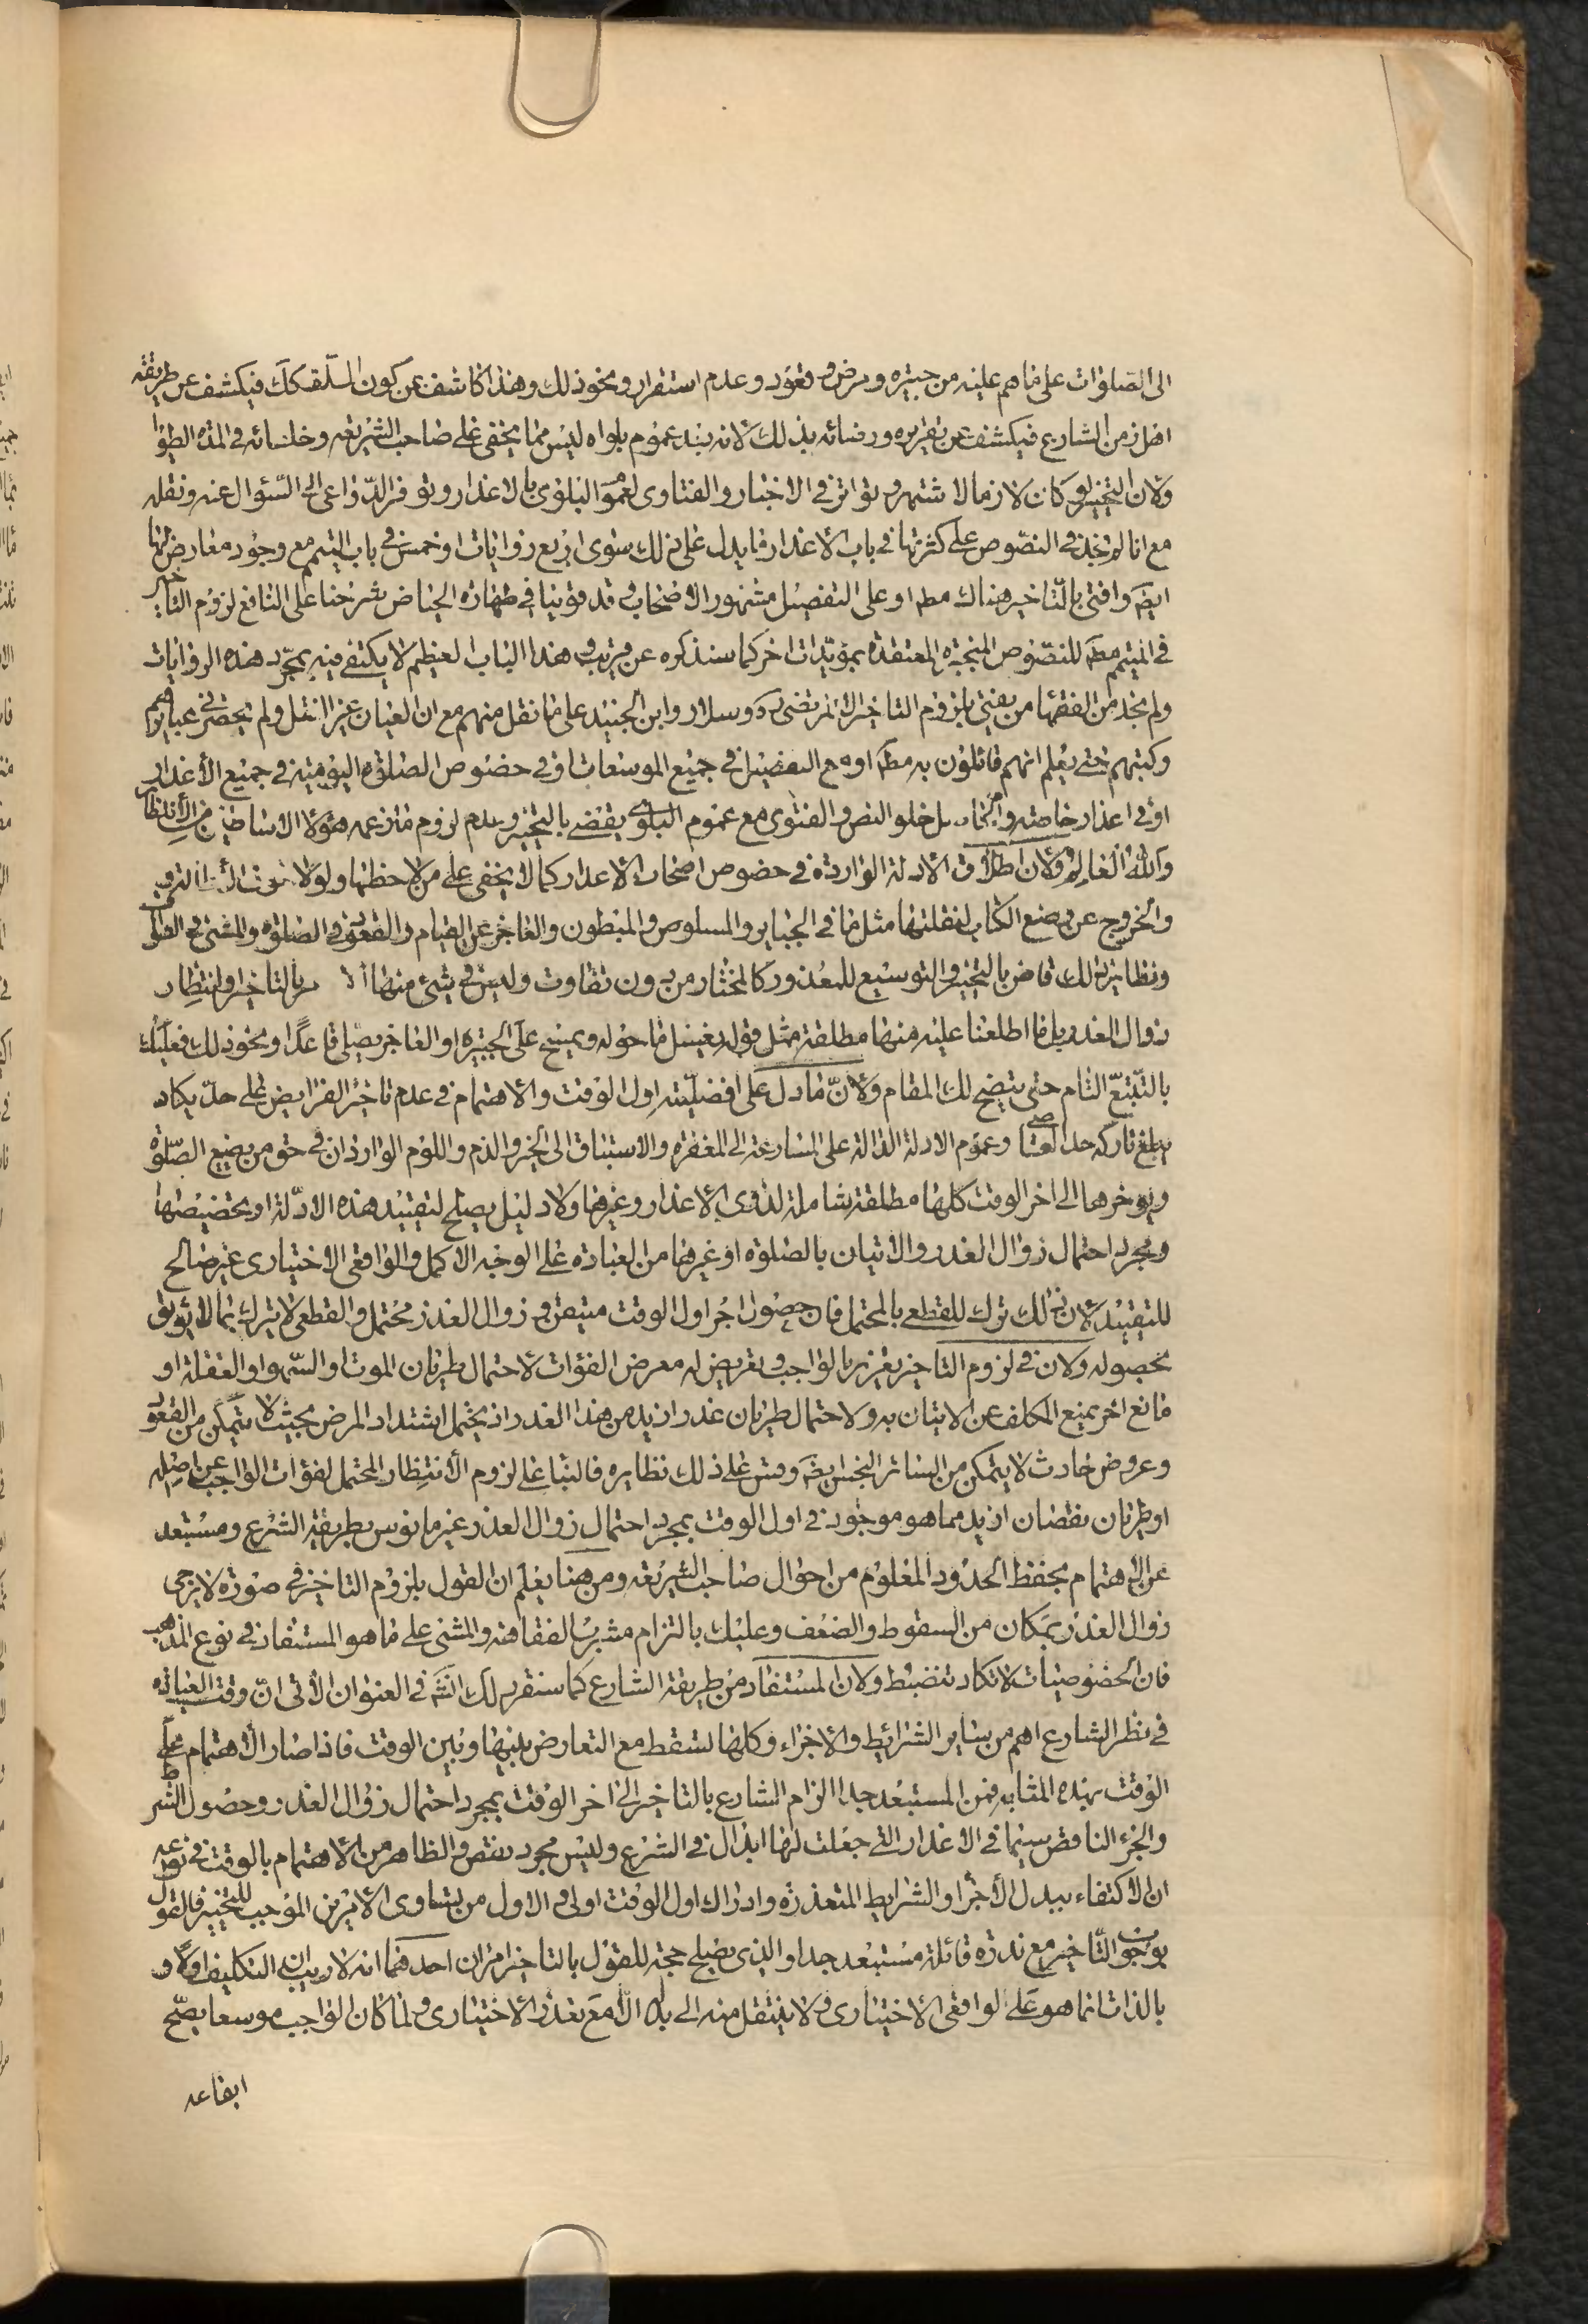 الى الصلوات على ما هم عليه من جبيرة ومرض وقعود وعدم استقرار ونحو ذلك وهذا كاشف عن كون السلف كك فيكشف عن طريقة
من الشارع فيكشف عن تقريره ورضائه بذلك لانه بعد عموم بلواه ليس مما يخفى على صاحب الشريعة وخلفائه في المدة
ولان التخيير لو كان لازما لاشتهر وتواتر في الاخبار والفتاوى لعموم البلوى بالاعذار وتوفر الدواعي الى السؤال عنه ونقله
مع انا لم نجد في النصوص على كثرتها في باب الاعذار ما يدل على ذلك سوى اربع روايات او خمس في باب التيمم مع وجود معارض لها
ايضا وافتى بالتاخير هناك مطه او على التفصيل مشهور الاصحاب وقد قوينا في طهارة الحياض شرحنا على النافع لزوم التاخير
في التيمم مطه للنصوص المنجبرة المعتقدة بمؤيدات اخر كما سنذكره عن قريب وهذا الباب العظيم لا يكتفى فيه بمجرد هذه الروايات
ولم نجد من الفقهاء من يفتي بلزوم التاخير الا المرتضى ره وسلار وابن الجنيد على ما نقل منهم مع ان العيان غير النقل ولم يحضرني عبايرهم
وكتبهم حتى يعلم انهم قائلون به مطه او مع التفصيل في جميع الموسعات او في خصوص الصلوة اليومية في جميع الأعذار
او في اعذار خاصة خلو النص والفتوى مع عموم البلوى يقضي بالتخيير وعدم لزوم ما زعمه هؤلاء الاساطين من الأنتظار
والله العالم ولان اطلاق الادلة الواردة في خصوص اصحاب الاعذار كما لا يخفى على من لاحظها ولولا خوف
والخروج عن وضع الكتاب لنقلتها مثل ما في الجباير والمسلوس والمبطون والعاجز عن القيام والقعود في الصلوة والمشي في الطواف
ونظاير ذلك قاض بالتخيير والتوسيع للمعذور كالمختار من دون تفاوت وليس في شيء منها بالتاخير وانتظار
زوال العذر بل ما اطلعنا عليه منها مطلقة مثل قوله يغسل ما حوله ويمسح على الجبيرة او العاجز يصلي قاعدا ونحو ذلك فعليك
بالتتبع التام حتى يتضح لك المقام ولان ما دل على افضلية اول الوقت والاهتمام في عدم تاخير الفرايض على حد يكاد
يبلغ تاركه حد وعموم الادلة الدالة على المسارعة الى المغفرة والاستباق الى الخير والذم واللوم الواردان في حق من يضيع الصلوة
ويؤخرها الى اخر الوقت كلها مطلقة شاملة لذوي الأعذار وغيرها ولا دليل يصلح لتقييد هذه الادلة او تخصيصها
ومجرد احتمال زوال العذر والاتيان بالصلوة او غيرها من العبادة على الوجه الاكمل والواقعي الاختياري غير صالح
للتقييد لان ذلك ترك للقطعي بالمحتمل فان حصول اجر اول الوقت متيقن وزوال العذر محتمل والقطعي لا يترك بما لا يوثق
بحصوله ولان في لزوم التاخير تغرير بالواجب وتعريض له معرض الفوات لاحتمال طريان الموت او السهو او الغفلة او
مانع اخر يمنع المكلف عن الاتيان به ولاحتمال طريان عذر ازيد من هذا العذر اذ يحتمل اشتداد المرض بحيث لا يتمكن من القعود
وعروض حادث لا يتمكن من الساتر النجس ايضا وقس على ذلك نظايره فالبناء على لزوم الأنتظار المحتمل لفوات الواجب عن اصله
او طريان نقصان ازيد مما هو موجود في اول الوقت بمجرد احتمال زوال العذر غير مانوس بطريقة الشرع ومستبعد
عن الاهتمام بحفظ الحدود المعلوم من احوال صاحب الشريعة ومن هنا يعلم ان القول بلزوم التاخير في صورة لا يرجى
زوال العذر بمكان من السقوط والضعف وعليك بالتزام مشرب الفقاهة والمشي على ما هو المستفاد في نوع المذهب
فان الخصوصيات لا تكاد تنضبط ولان المستفاد من طريقة الشارع كما سنقرر لك انش في العنوان الأتي ان وقت العبادة
في نظر الشارع اهم من سائر الشرائط والاجزاء وكلها تسقط مع التعارض بينها وبين الوقت فاذا صار الأهتمام على
الوقت بهذه المثابة فمن المستبعد جدا الزام الشارع بالتاخير الى اخر الوقت بمجرد احتمال زوال العذر وحصول الشرط
والجزء الناقص سيما في الاعذار التي جعلت لها ابدال في الشرع وليس مجرد نقص والظاهر من الاهتمام بالوقت في نوعه
ان الاكتفاء ببدل الأجزاء والشرايط المتعذرة وادراك اول الوقت اولى والاول من تساوى الامرين الموجب للتخيير فالقول
بوجوب التاخير مع ندرة قائله مستبعد جدا والذي يصلح حجة للقول بالتاخير امران احدهما انه لا ريب ان التكليف اولا و
بالذات انما هو على الواقعي الاختياري ولا ينتقل منه الى بدله الا مع تعذر الاختياري ولما كان الواجب موسعا يصح
ايقاعه